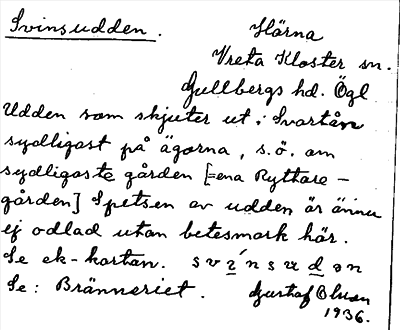 Svinsudden. Härna
Vreta Kloster sn.
Gullbergs hd. Ögl
Udden som skjuter ut i Svartån
sydligast på ägorna, s.ö. om
sydligaste gården [=ena Ryttare-
gården] Spetsen av udden är ännu
ej odlad utan betesmark här.
Se ek-kartan. svínsudən
Se: Bränneriet. Gustaf Olsson
1936.